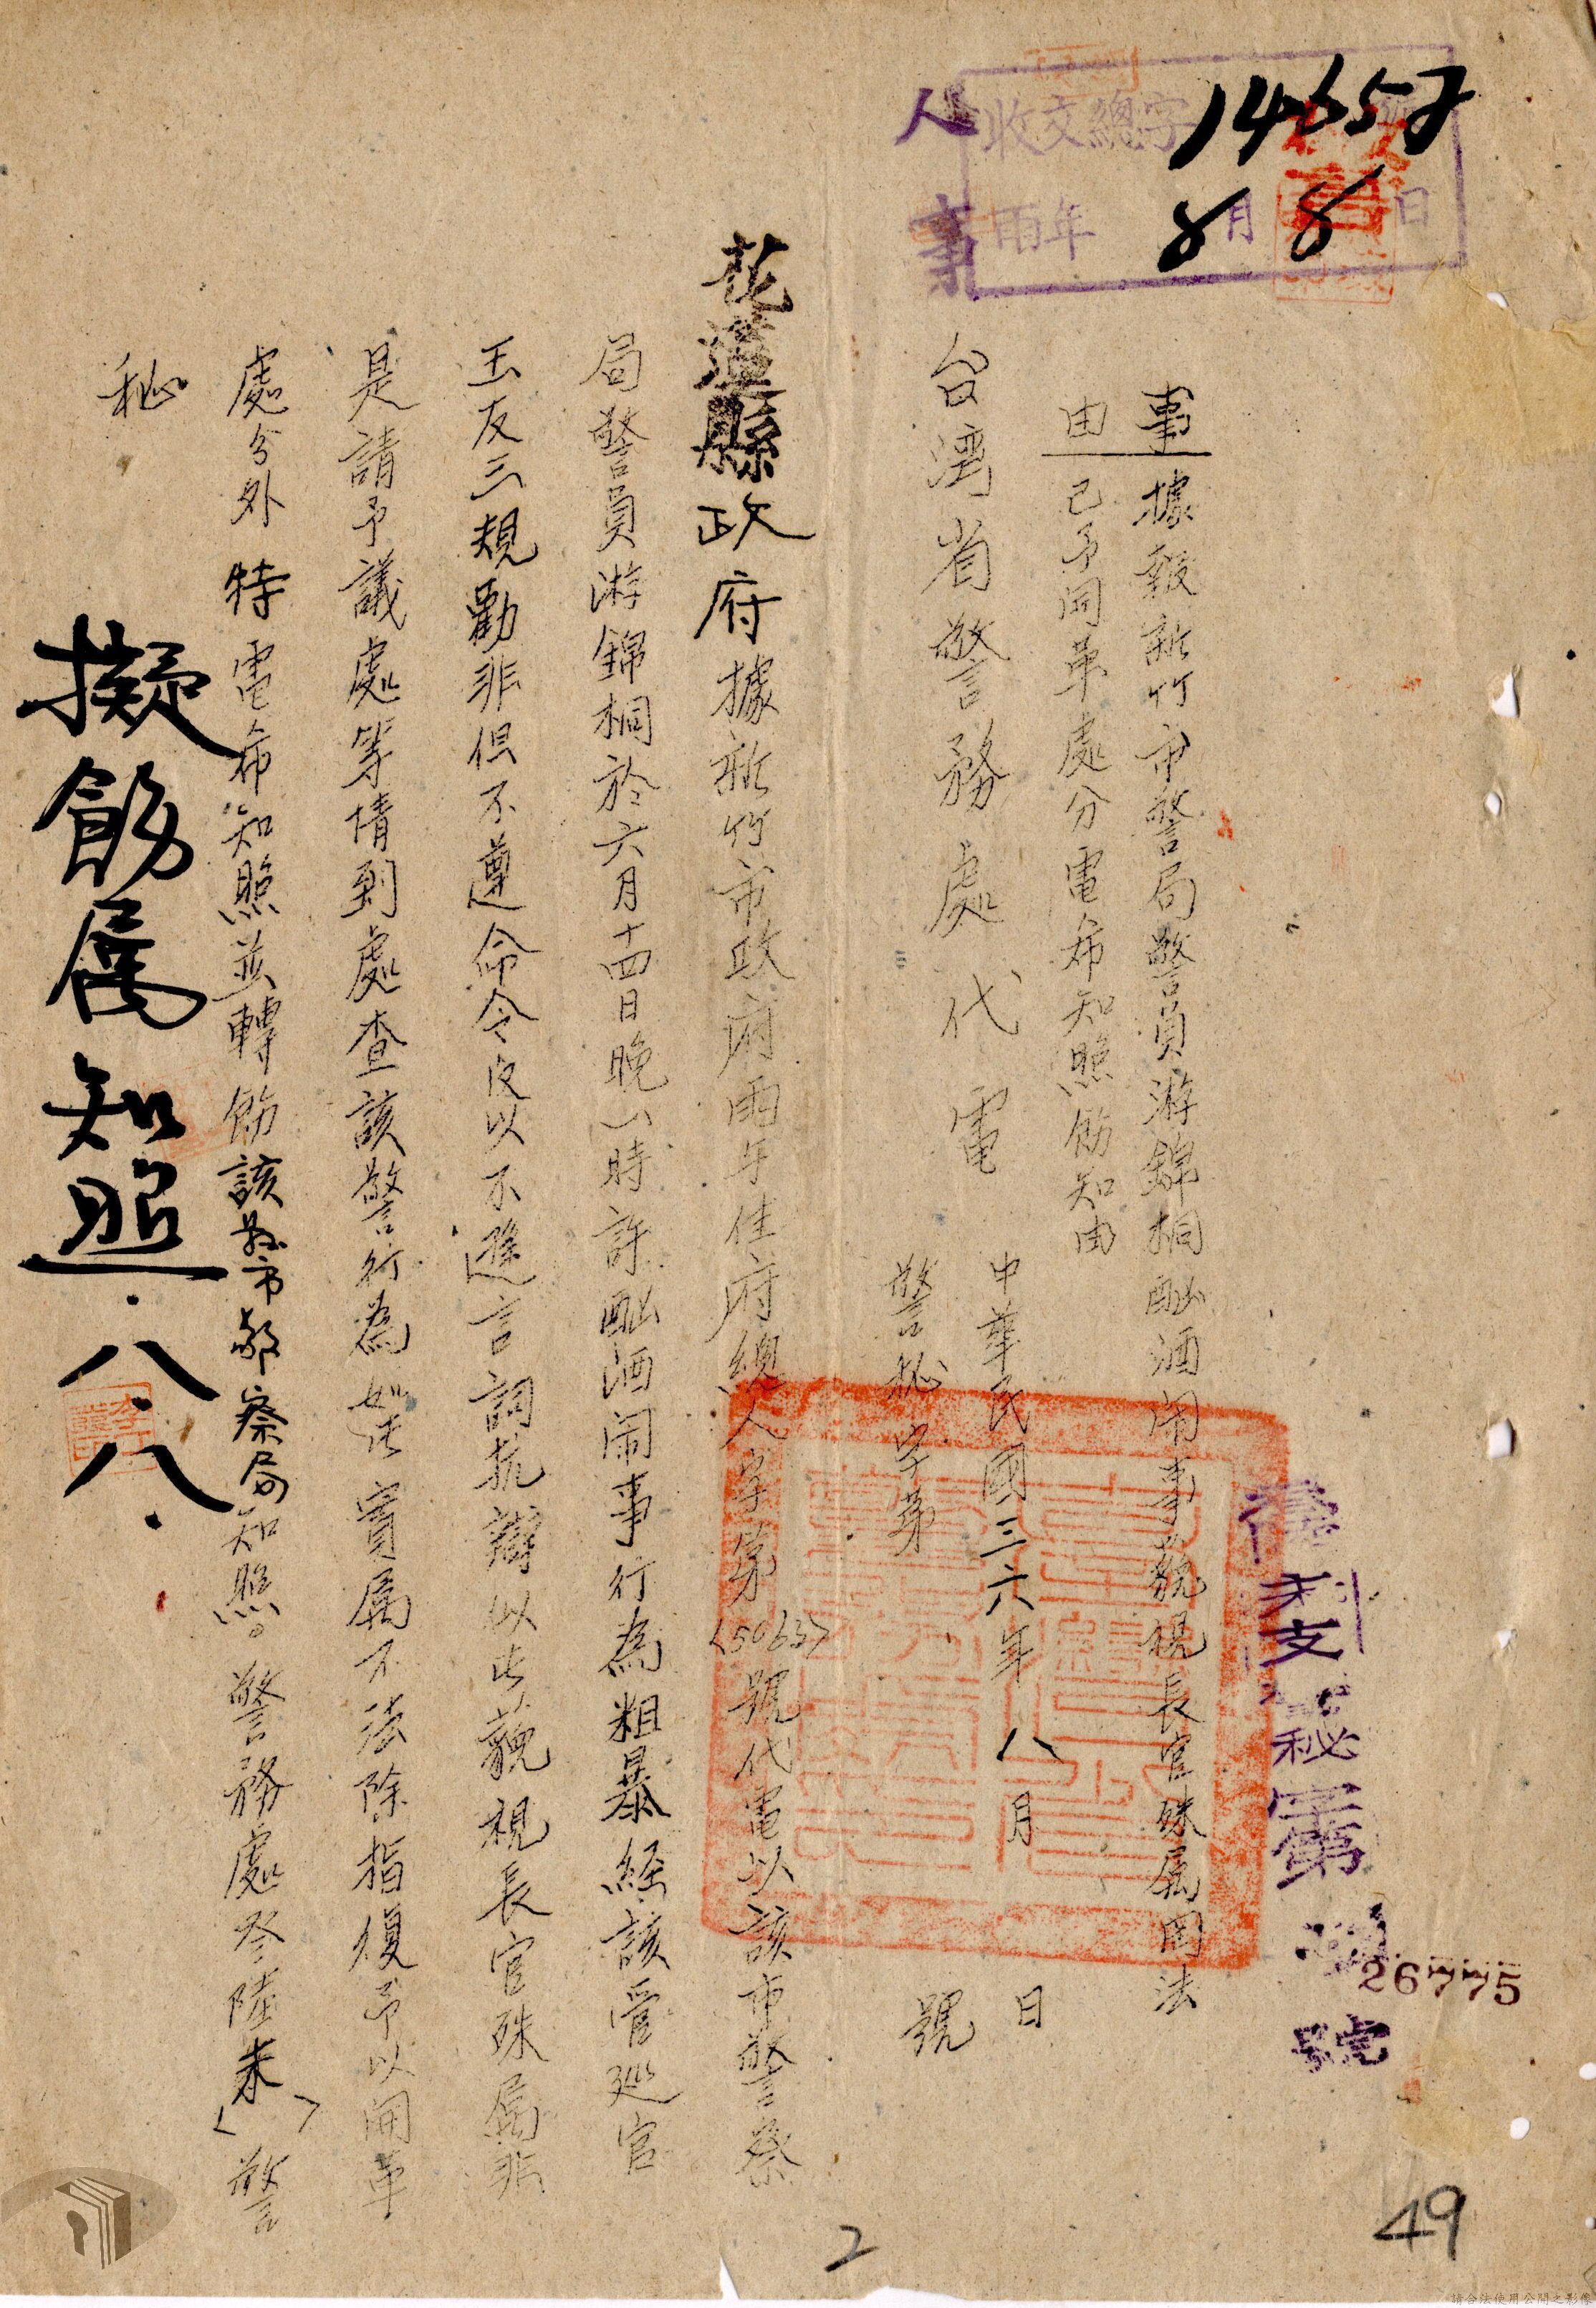 人事
收文總字 14657
丙年 8月8日
事由
據報新竹市警局警員游錦桐酗酒鬧事藐視長官殊屬罔法
已予開革處分電希知照飭知由
台湾省警務處代電
中華民國三六年八月 日
警秘字第 號
秘字第 號
26775
花蓮縣政府據新竹市政府丙午佳府總人字第(5063)號代電以該市警察
局警員游錦桐於六月十四日晚八時許酗酒闹事行為粗暴経該管巡官
玉友三規勸非但不遵命令反以不遜言詞抗辯似此藐視長官殊属非
是請予議處等情到處查該警行為如此實属不法除指復予以開革
處分外特電希知照並轉飭該县市 察局知照。警務處 陸未( )警
秘
擬飭属知照.八.八.
2
49
請合法使用公開之影像